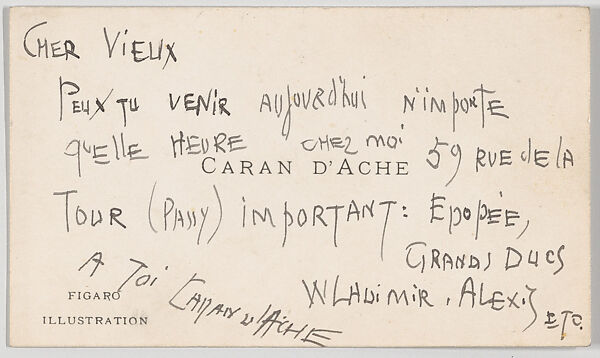 CHER VIEUX
PEUX TU VENIR AUJOURD'HUI N'IMPORTE
QUELLE HEURE CHEZ MOI 59 RUE de LA
CARAN D'ACHE
TOUR (PASSY) IMPORTANT: EPOPÉE,
GRANDS DUCS
WLADIMIR, ALEXIS
ETC.
A TOI CARAN D'ACHE
FIGARO
ILLUSTRATION